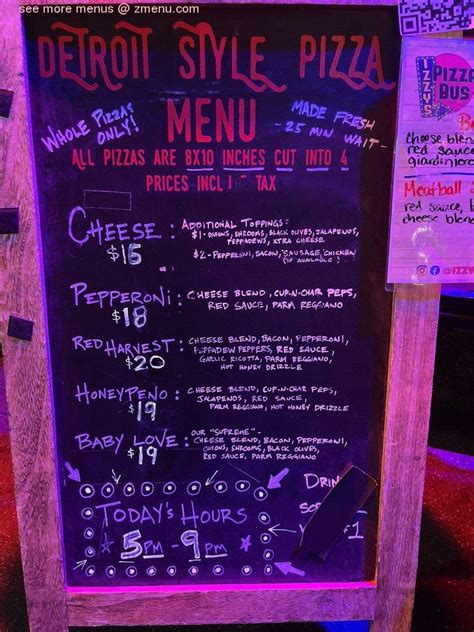 see more menus @ zmenu.com
DETROIT STYLE PIZZA
MENU
WHOLE PIZZAS
ONLY!
MADE FRESH
- 25 MIN WAIT -
ALL PIZZAS ARE 8X10 INCHES CUT INTO 4
PRICES INCL TAX
CHEESE :
$15
ADDITIONAL TOPPINGS:
$1 - ONIONS, SHROOMS, BLACK OLIVES, JALAPENOS,
PEPPADEWS, XTRA CHEESE
$2 - PEPPERONI, BACON, SAUSAGE, CHICKEN
(IF AVAILABLE)
PEPPERONI :
$18
CHEESE BLEND, CUP-N-CHAR PEPS,
RED SAUCE, PARM REGGIANO
RED HARVEST :
$20
CHEESE BLEND, BACON, PEPPERONI,
PEPPADEW PEPPERS, RED SAUCE,
GARLIC RICOTTA, PARM REGGIANO,
HOT HONEY DRIZZLE
HONEYPENO :
$19
CHEESE BLEND, CUP-N-CHAR PEPS,
JALAPENOS, RED SAUCE,
PARM REGGIANO, HOT HONEY DRIZZLE
BABY LOVE :
$19
OUR "SUPREME" -
CHEESE BLEND, BACON, PEPPERONI,
ONIONS, SHROOMS, BLACK OLIVES,
RED SAUCE, PARM REGGIANO
TODAY'S HOURS
5PM - 9PM
DRIN
$1
IZZY'S
PIZZA
BUS
cheese blen
red sauce
giardinier
Meatball
red sauce, b
cheese blen
@IZZY